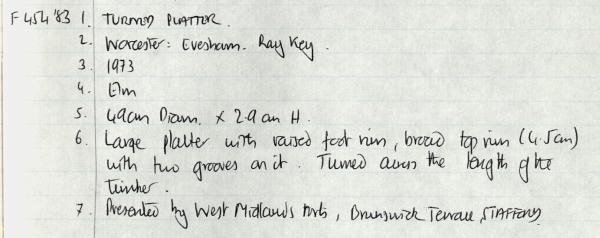 F 454 '83 1. TURNED PLATTER.
2. Worcester: Evesham. Ray Key.
3. 1973
4. Elm
5. 49cm Diam. x 2.9cm H.
6. Large platter with raised foot rim, broad top rim (4.5cm)
with two grooves on it. Turned across the length of the
timber.
7. Presented by West Midlands Arts, Brunswick Terrace, STAFFORD